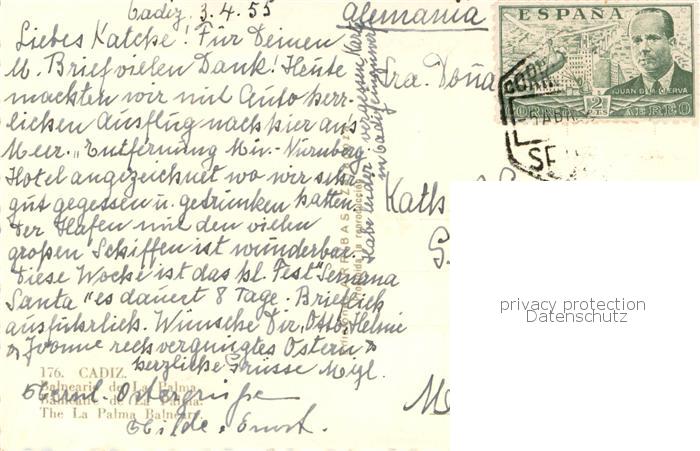 Cadiz, 3.4.55
Liebes Kätche! Für Deinen
lb. Brief vielen Dank! Heute
machten wir mit Auto herr-
lichen Ausflug nach hier ans
Meer. "Entfernung Mü.-Nürnberg"
Hotel angezeichnet wo wir sehr
gut gegessen u. getrunken hatten
Der Hafen mit den vielen
großen Schiffen ist wunderbar
Diese Woche ist das hl. Fest "Semana
Santa" es dauert 8 Tage. Brieflich
ausführlich. Wünsche Dir, Otto, Helmie
u. Ivonne recht vergnügtes Ostern
herzliche Grüsse
Habe leider vergessen Karte
in Cadiz
176. CADIZ.
Balneario de La Palma.
Balnéaire de La Palma.
The La Palma Balneary.
Herzl. Ostergrüße
Hilde, Ernst.
ARRIBAS
Prohibida la reproducción
Alemania
Sra. Doña
Kath
ESPAÑA
JUAN DE LA CIERVA
2 PTS
CORREO AEREO
privacy protection
Datenschutz